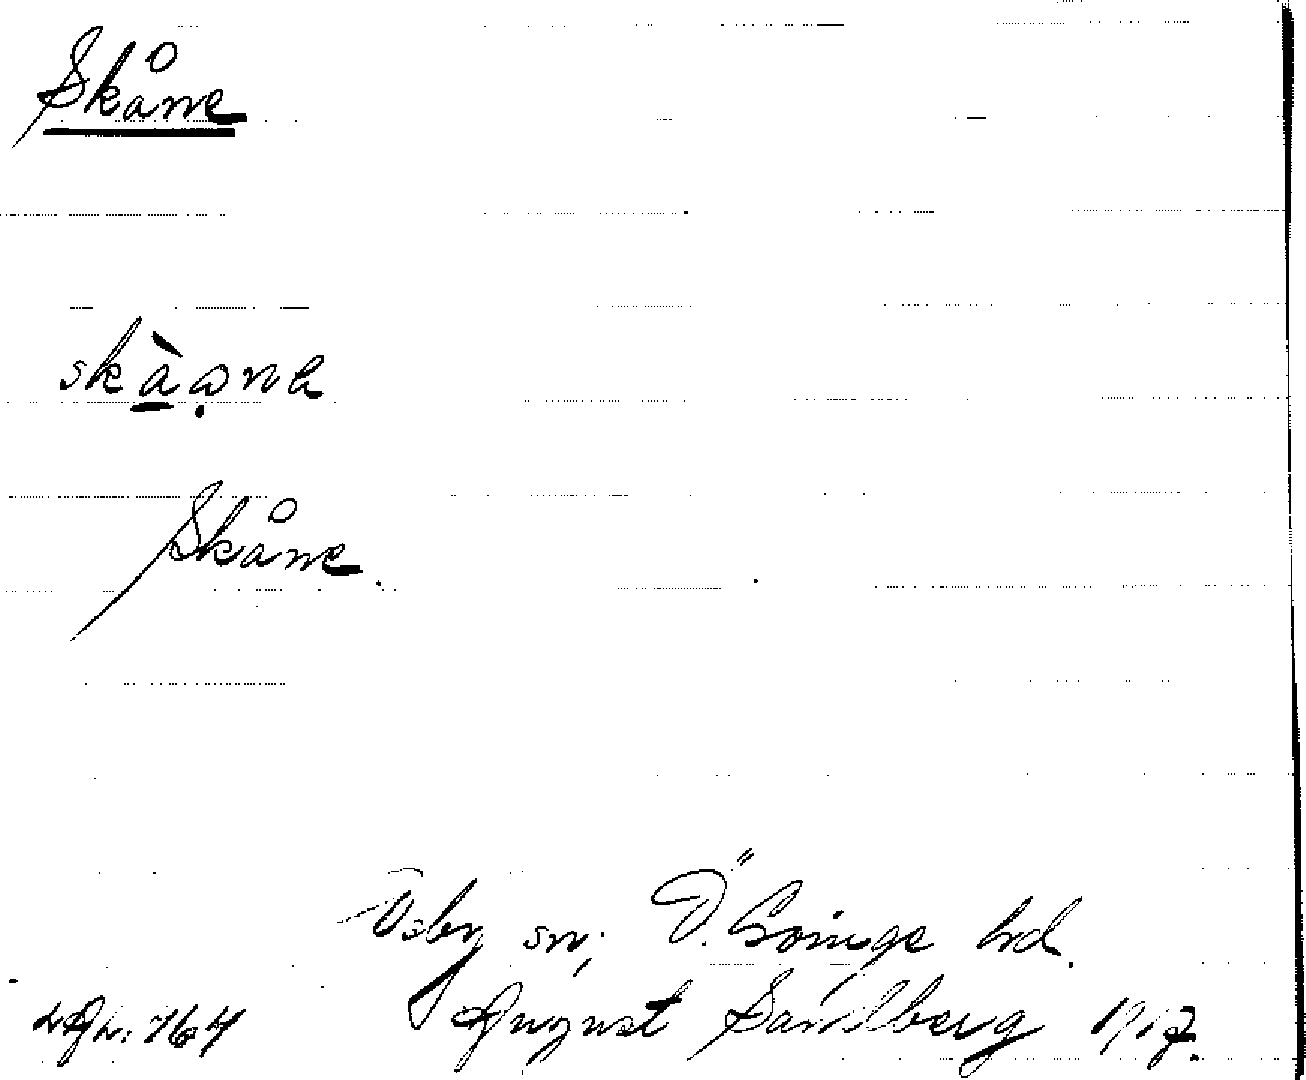 Skåne
skàạna
Skåne.
Osby sn; Ö. Göinge hd.
August Sandberg 1917.